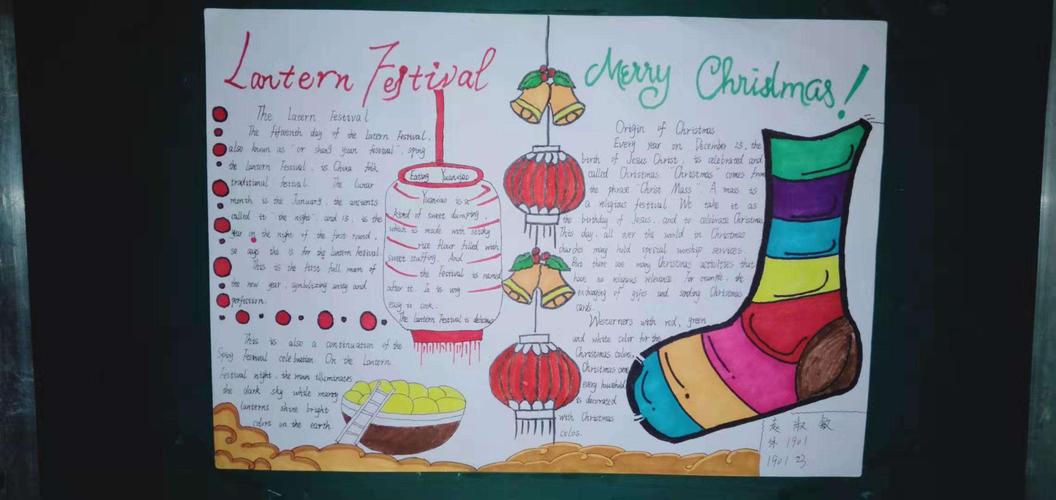 Lantern Festival
The Latern Festival
The fifteenth day of the Latern Festival,
also known as "or shang yuan festival", sping
the lantern Festival, is China folk
traditional festival. The lunar
month is the January, the ancients
called it the "night", and 15, is the
year on the night of the first round,
so says the is for the lantern Festival
This is the first full moon of
the new year, symbolizing unity and
perfection.
This is also a continuation of the
Spring Festival celebration. On the Lantern
Festival night, the moon illuminates
the dark sky while many
lanterns shine bright
colors on the earth.
Eating Yuanxiao
Yuanxiao is a
kind of sweet dumpling,
which is made with sticky
rice flour filled with
sweet stuffing. And
the Festival is named
after it. It is very
easy to cook.
The lantern Festival is delicious
Merry Christmas!
Origin of Christmas
Every year on December 25, the
birth of Jesus Christ, is celebrated and
called Christmas. "Christmas" comes from
the phrase "Christ Mass". A mass is
a religious festival. We take it as
the birthday of Jesus, and to celebrate Christmas
This day, all over the world in Christmas
churches many hold special worship services.
But there are many Christmas activities that
have no religious relevance. For example, the
exchanging of gifts and sending Christmas
cards.
Westurners with red, green
and white color for the
Christmas colors,
Christmas
every household
is decorated
with Christmas
colos.
敏
1901
1901 23